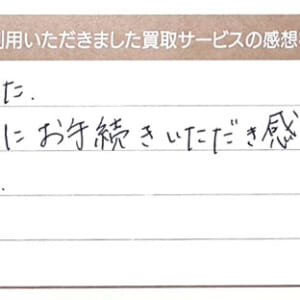 利用いただきました買取サービスの感想
た.
にお手続きいただき感
.